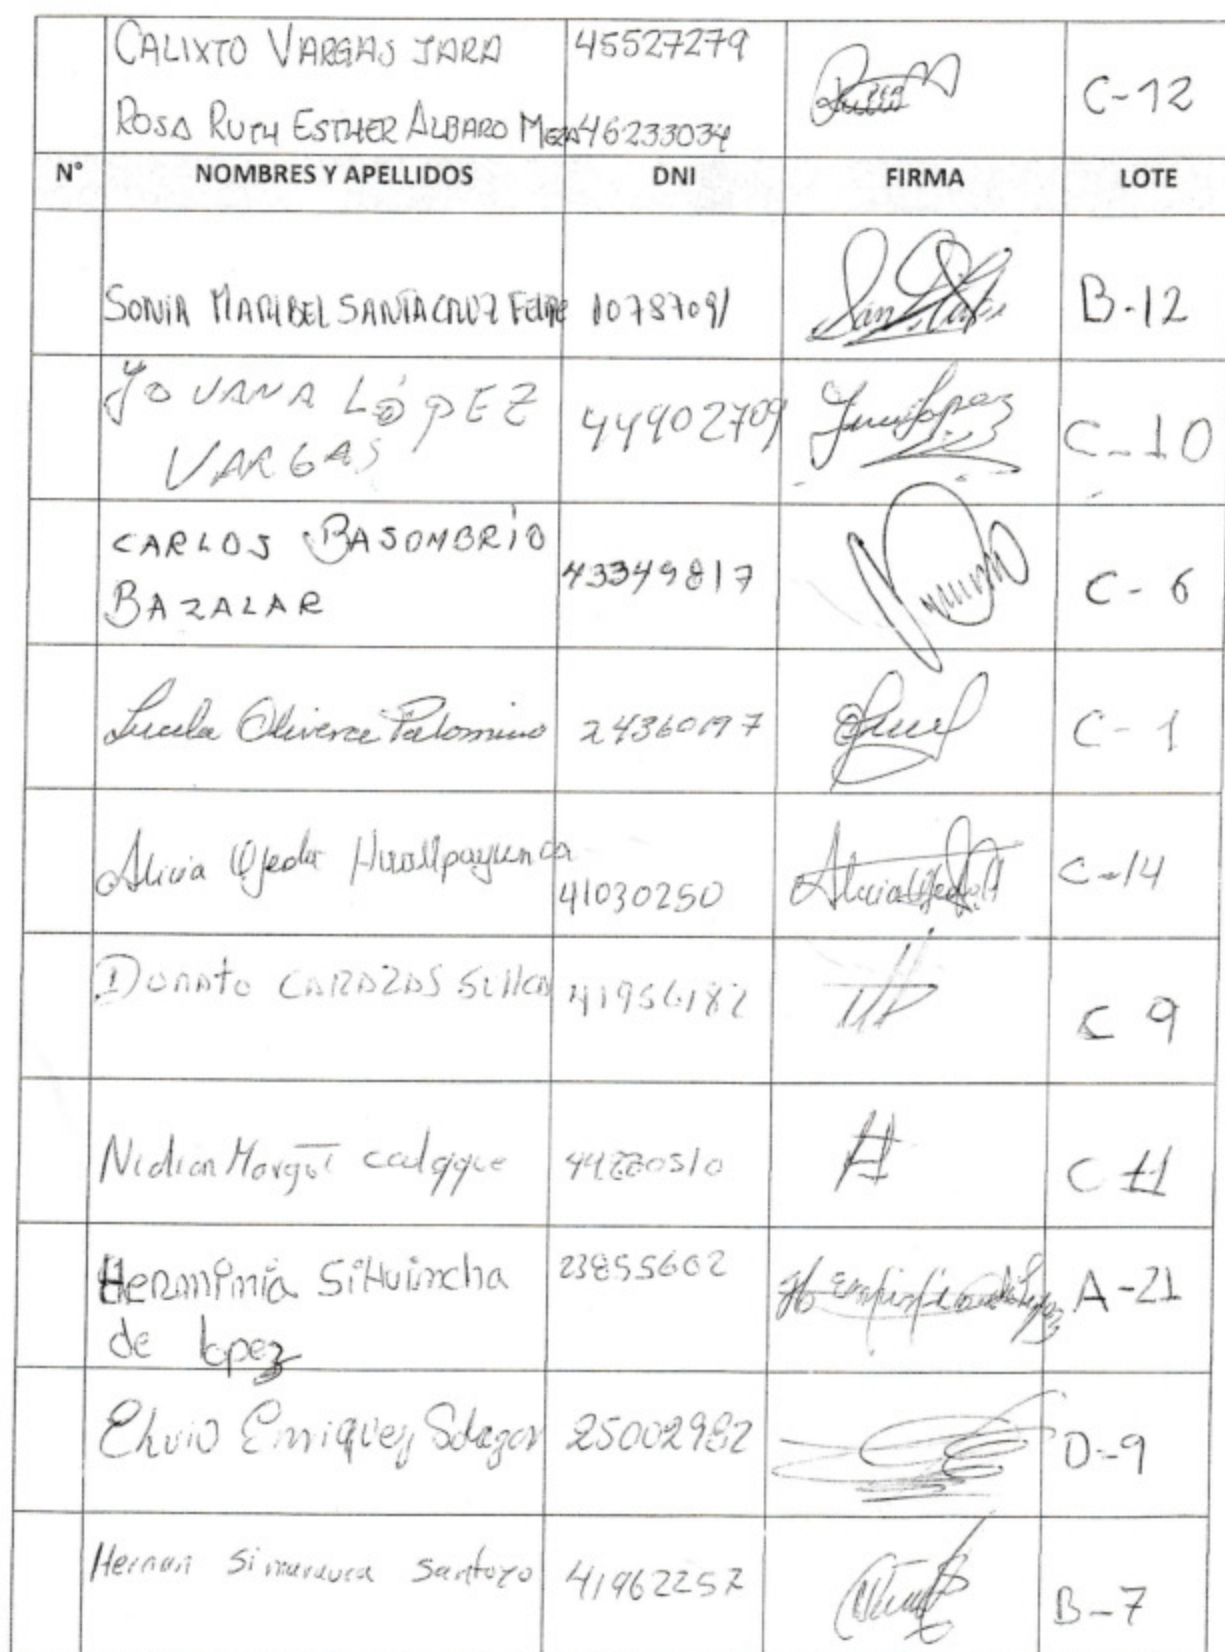 CALIXTO VARGAS JARA 45527279
ROSA RUTH ESTHER ALBARO MEZA 46233034 C-12
N° NOMBRES Y APELLIDOS DNI FIRMA LOTE
SONIA MARIBEL SANTACRUZ FELIPE 10787091 B-12
YOVANA LÓPEZ
VARGAS 44902709 C-10
CARLOS BASOMBRÍO
BAZALAR 43349817 C-6
Lucila Olivera Palomino 24360197 C-1
Alicia Ojeda Huallpayunca
41030250 C-14
DONATO CARAZAS SULLCA 41956182 C 9
Nidian Margot calqque 44220510 C 11
Herminia SiHuincha 23855602 A-21
de lopez
Elvio Enriquez Salazar 25002982 D-9
Hernan Simuraura Santoyo 41962257 B-7